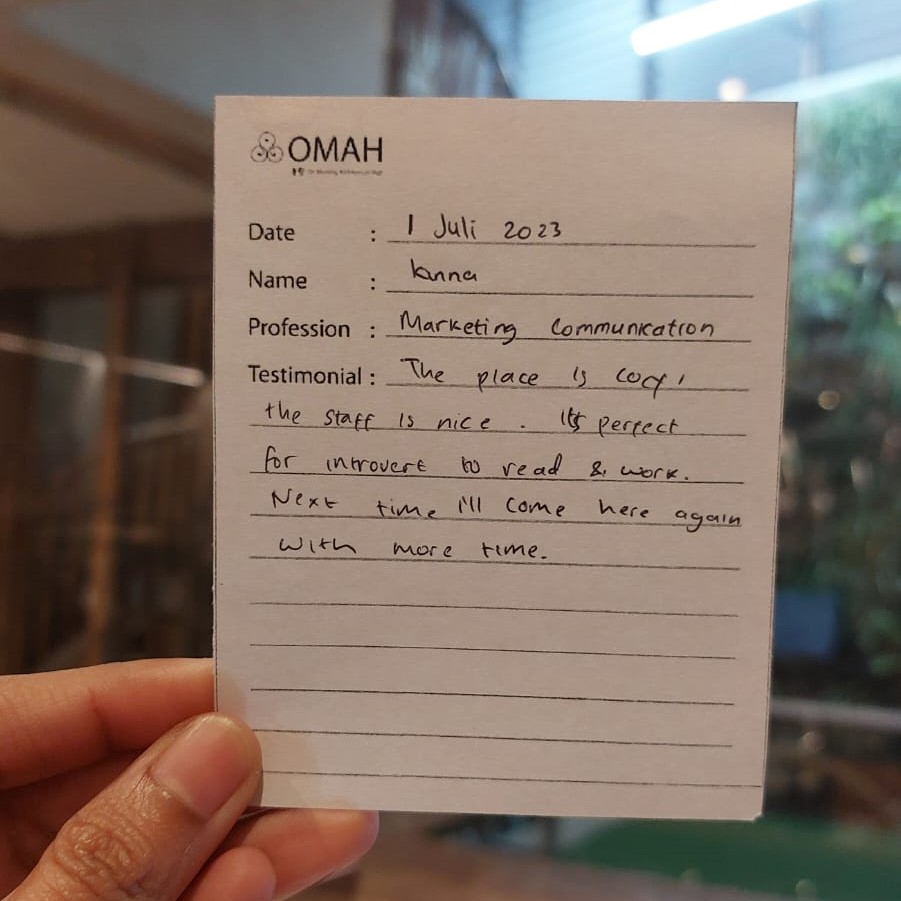 OMAH
Date : 1 Juli 2023
Name :
Profession : Marketing Communication
Testimonial : The place is cozy,
the staff is nice. It's perfect
for introvert to read & work.
Next time I'll come here again
with more time.